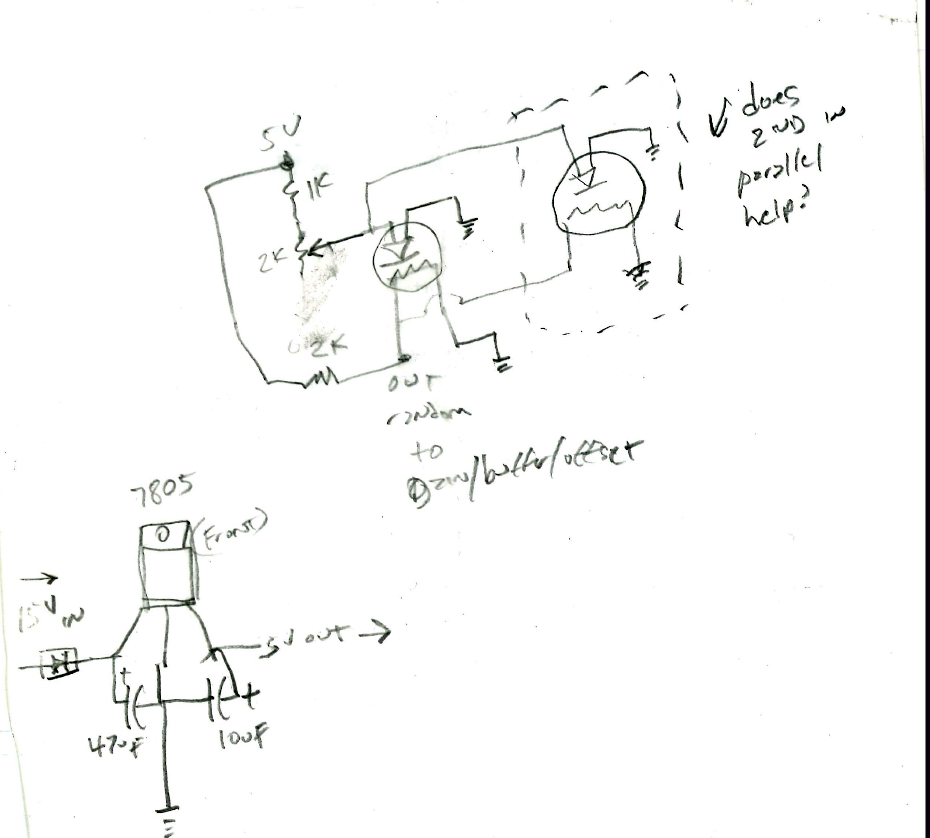 5V
1K
2K
2K
↙ does
2ND IN
parallel
help?
OUT
random
to
gain/buffer/offset
7805
(Front)
→
15V IN
5V out →
+
+
47uF
10uF